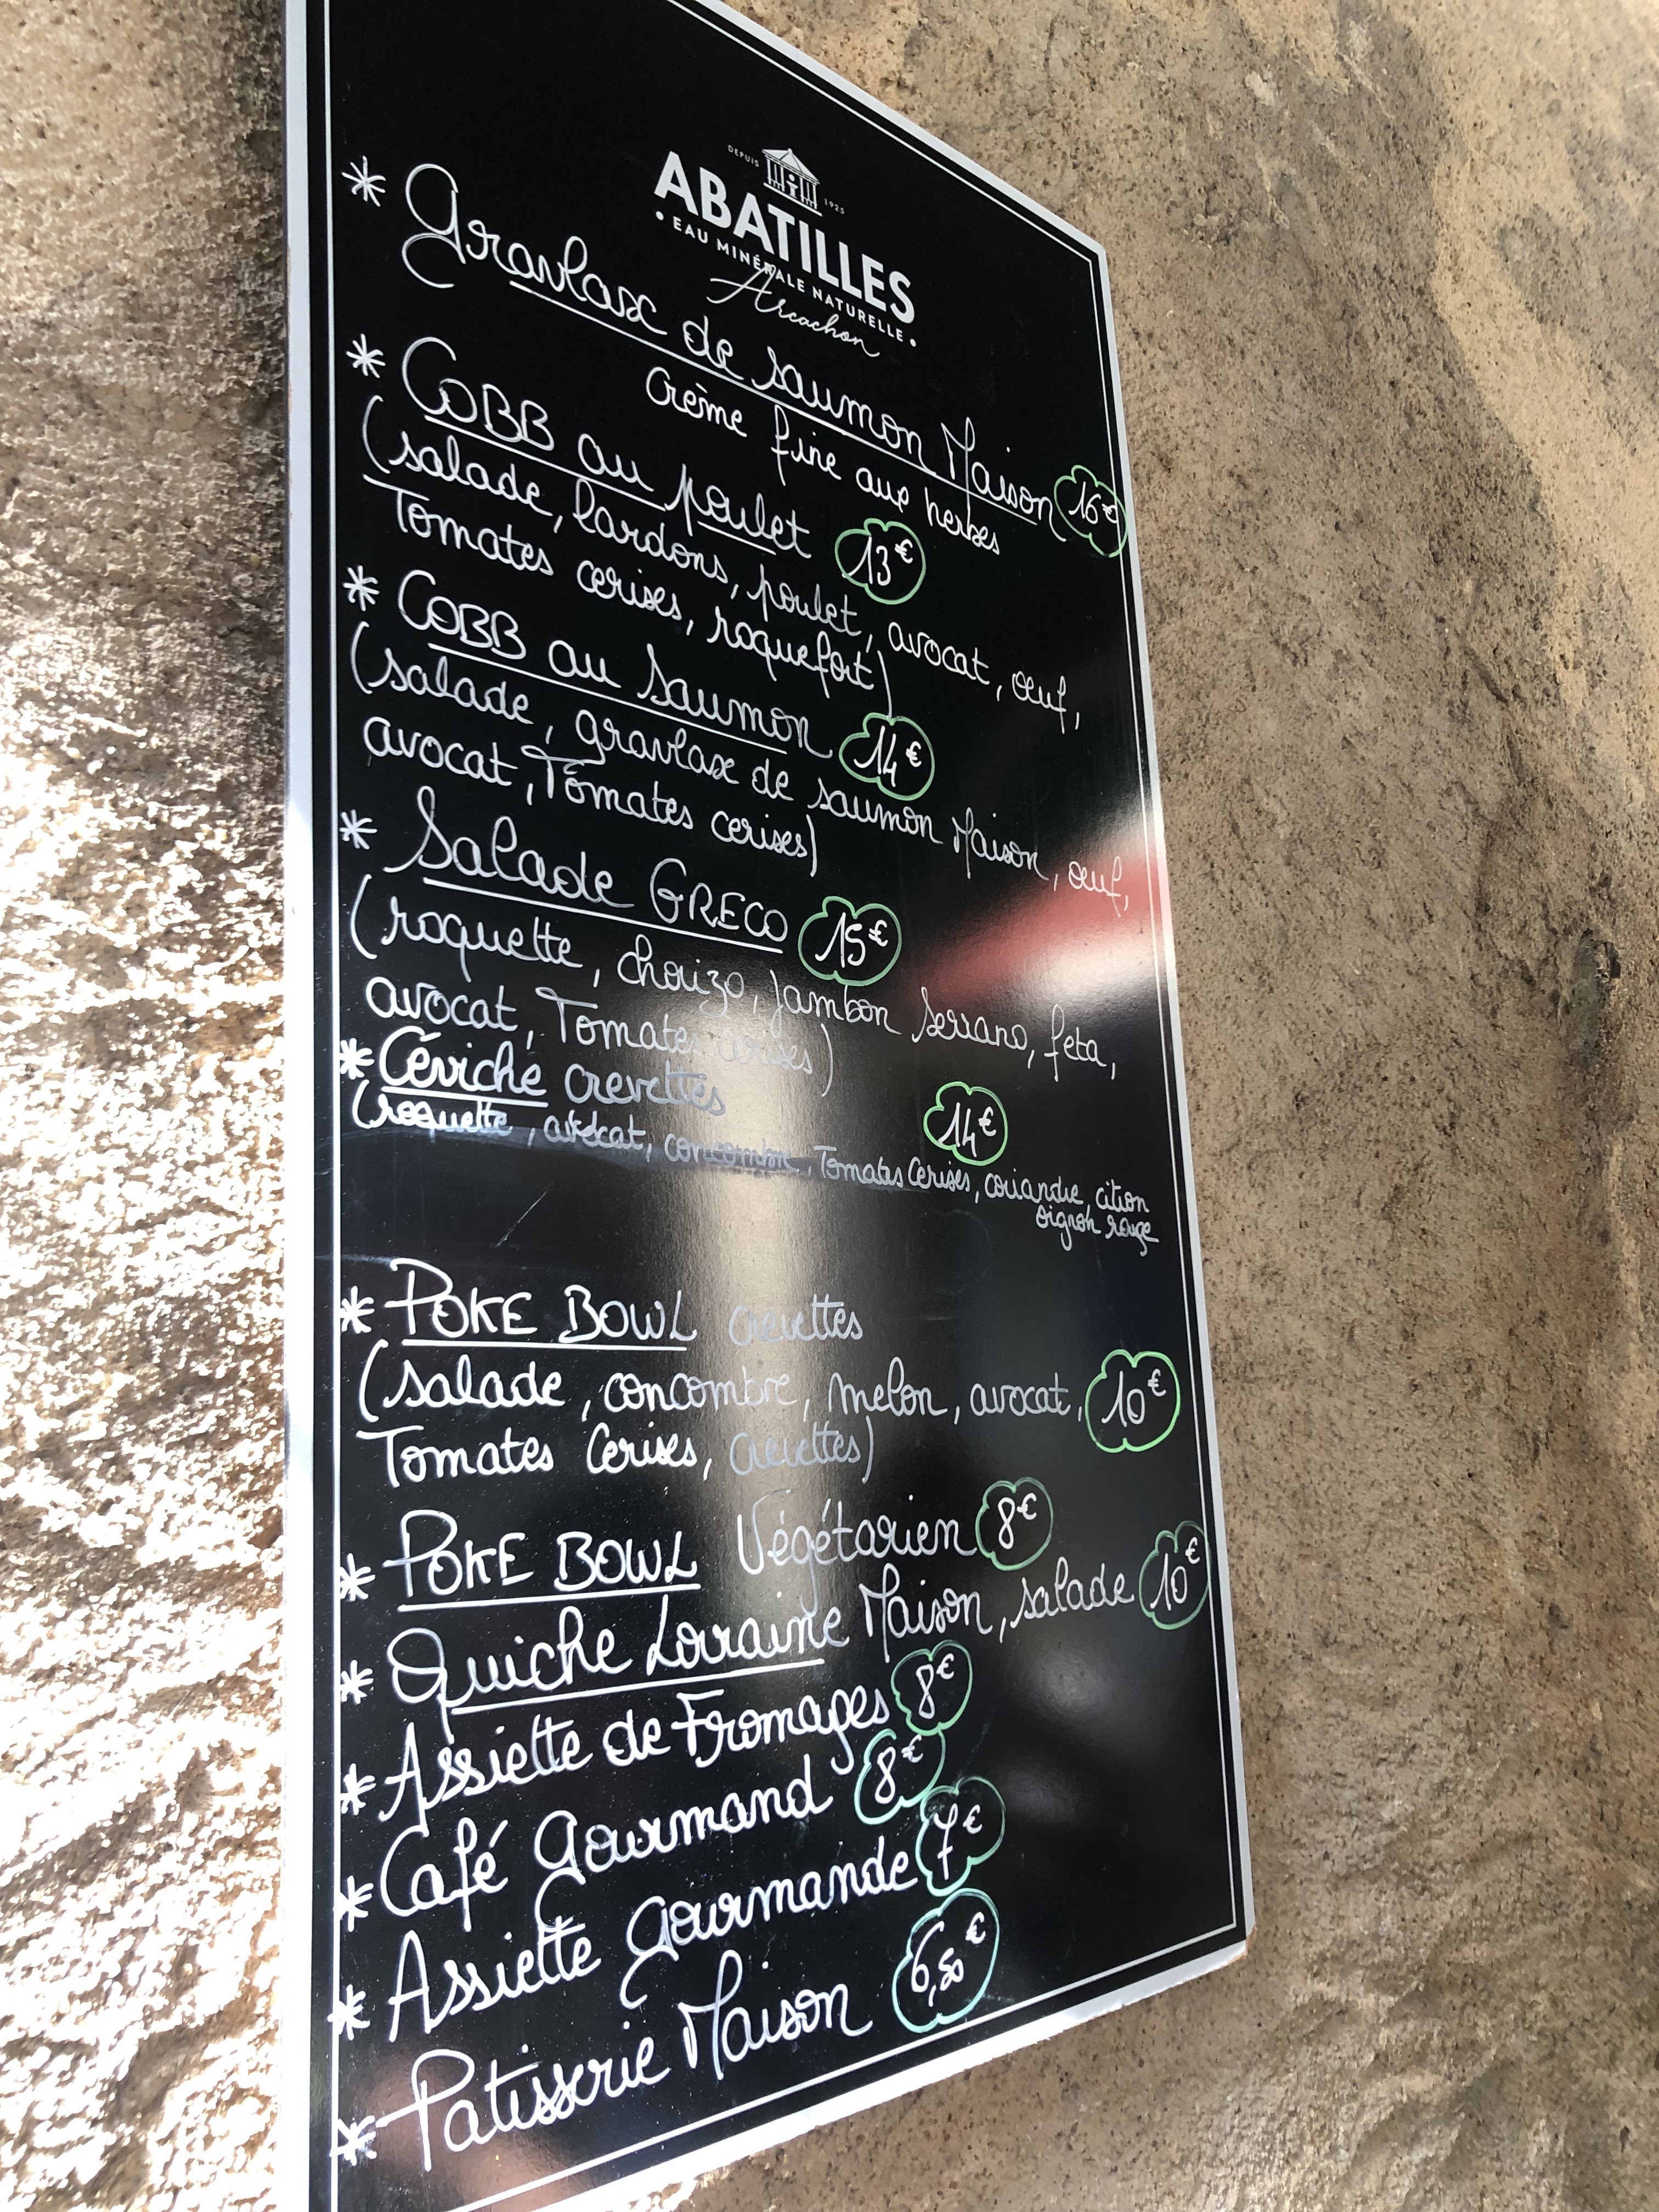 DEPUIS 1925
ABATILLES
• EAU MINÉRALE NATURELLE •
Arcachon
* Gravlax de saumon Maison 16€
Crème fine aux herbes
* COBB au poulet 13€
(salade, lardons, poulet, avocat, œuf,
Tomates cerises, roquefort)
* COBB au Saumon 14€
(salade, gravlax de saumon Maison, œuf,
avocat, Tomates cerises)
* Salade GRECO 15€
(roquette, chorizo, jambon Serrano, feta,
avocat, Tomates cerises)
* Céviché crevettes 14€
(roquette, avocat, concombre, Tomates Cerises, coriandre, citron
oignon rouge
* POKE BOWL crevettes
(salade, concombre, melon, avocat, 10€
Tomates Cerises, crevettes)
* POKE BOWL Végétarien 8€
* Quiche Lorraine Maison, salade 10€
* Assiette de Fromages 8€
* Café Gourmand 8€
* Assiette Gourmande 7€
* Patisserie Maison 6,50€